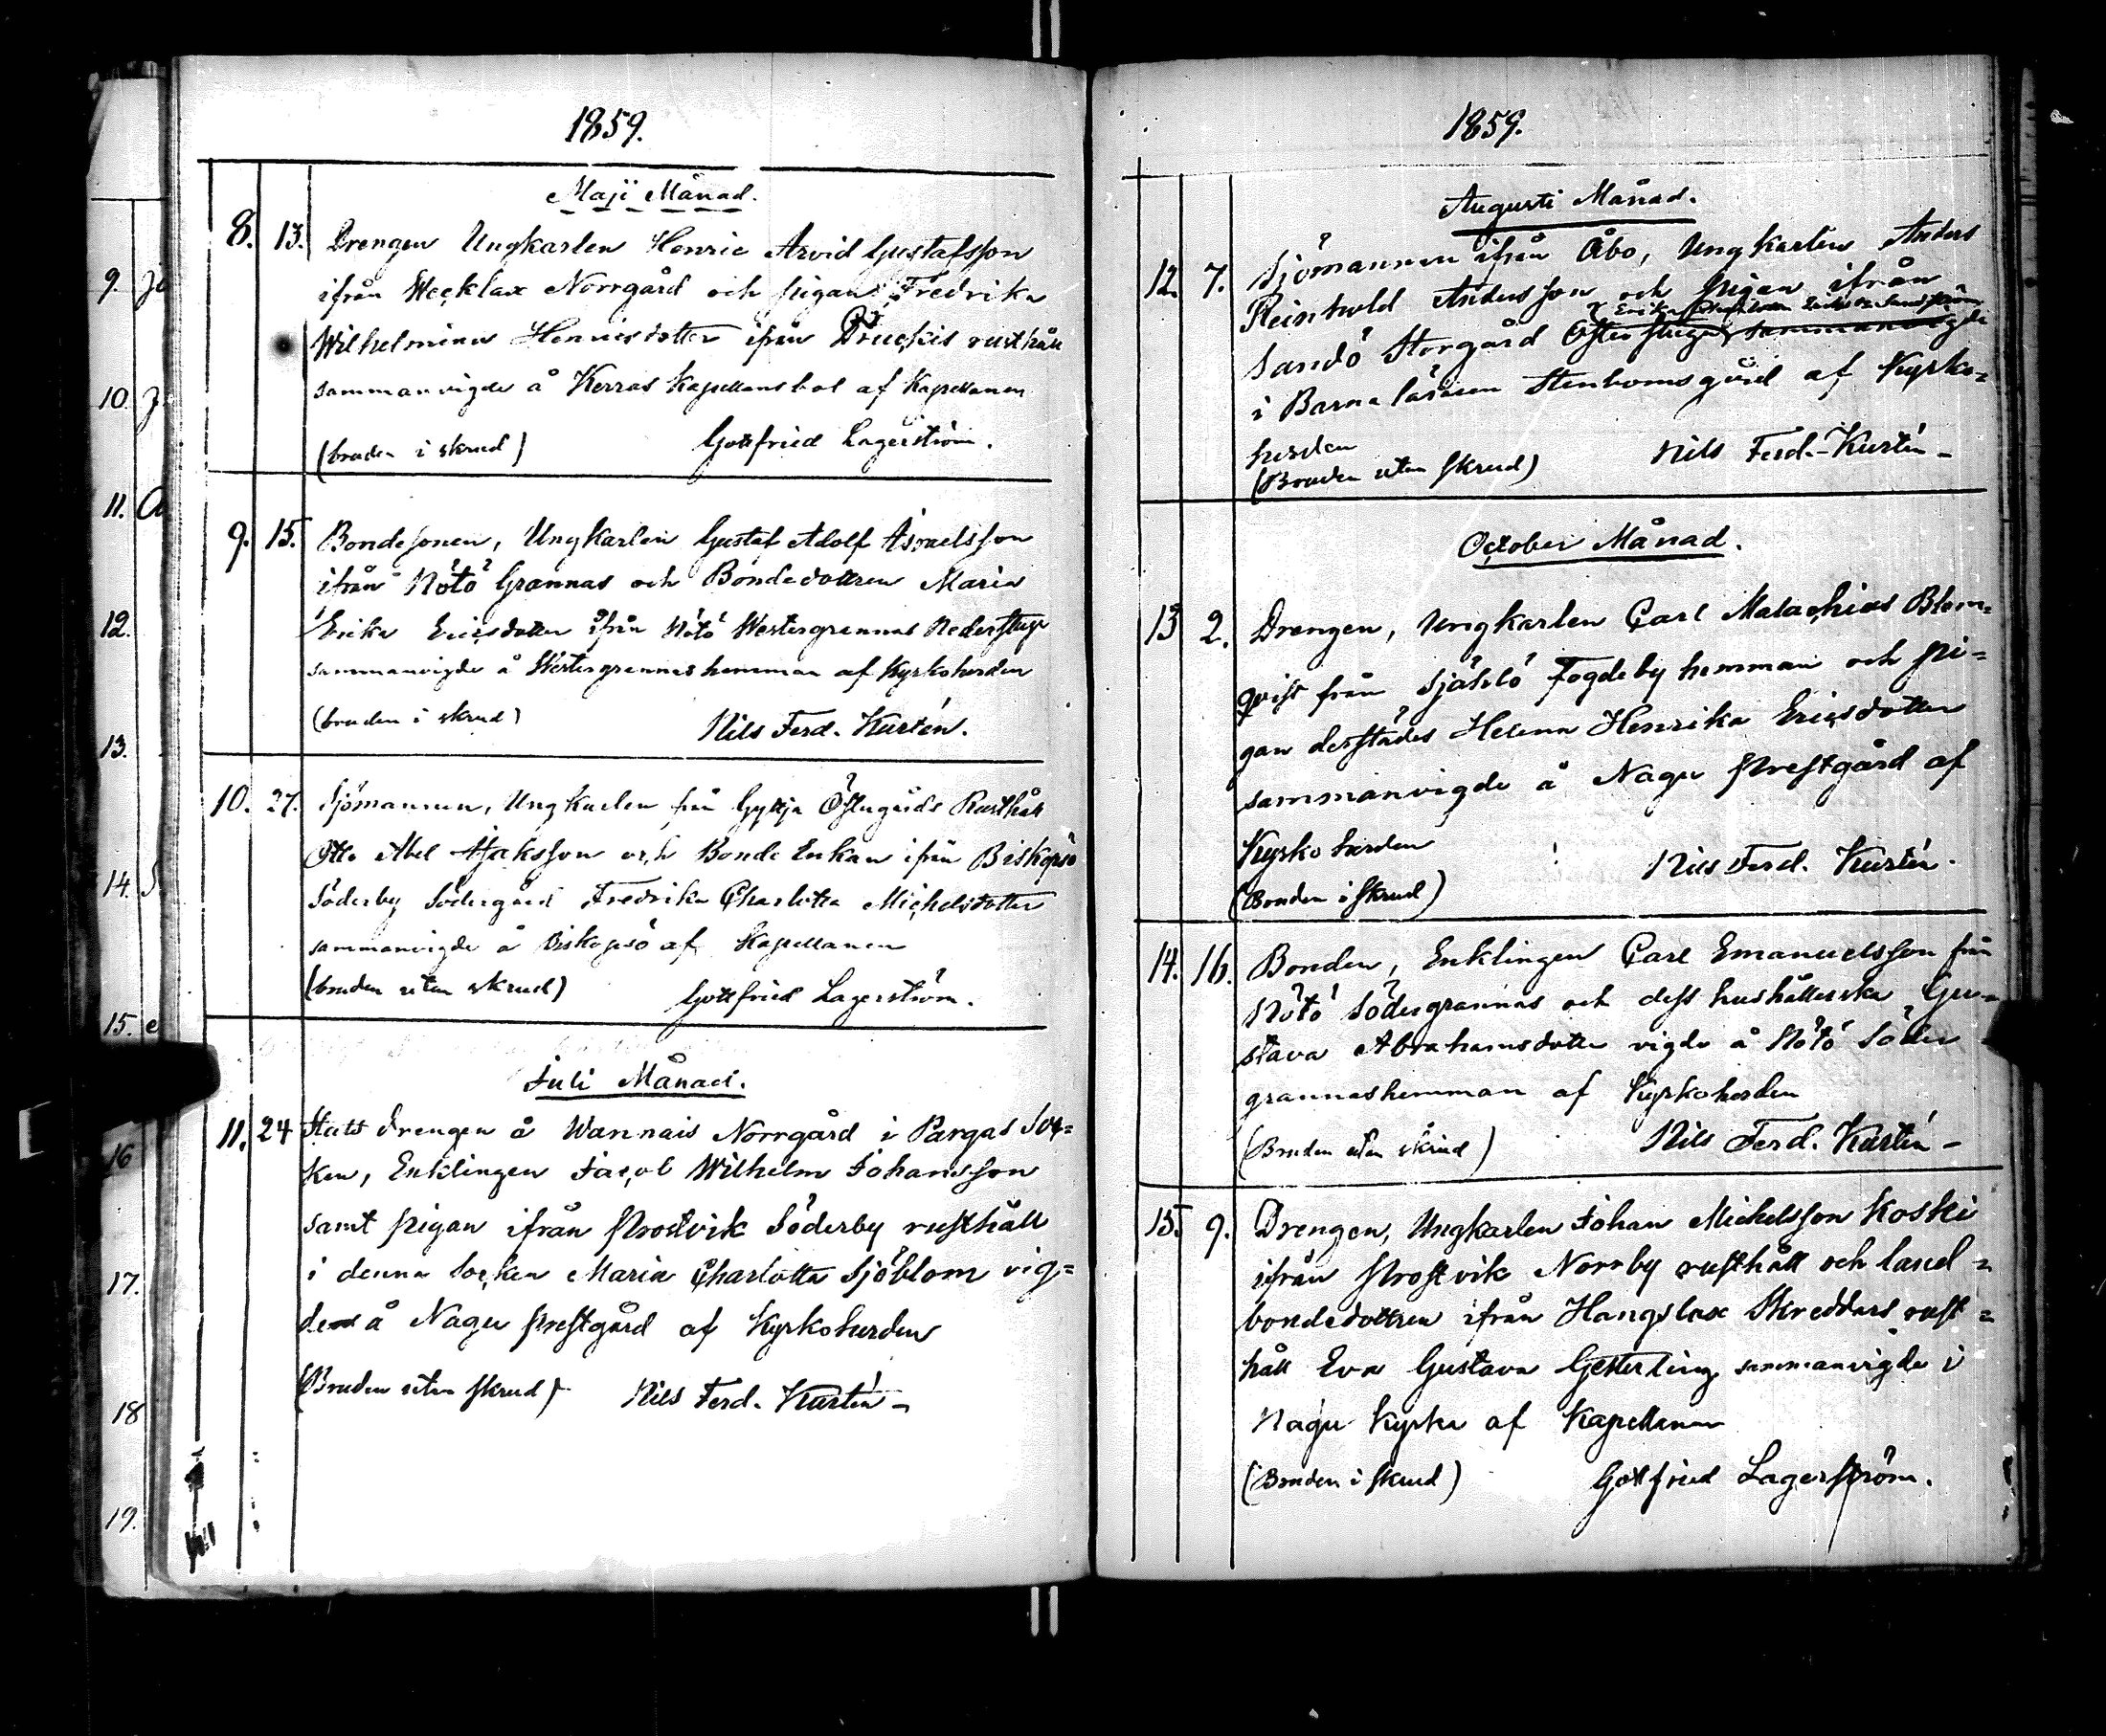 1859.
Maji Månad.
8. 13. Drengen Ungkarlen Henric Arvid Gustafsson
ifrån Wecklax Norrgård och pigan Fredrika
Wilhelmina Henricsdotter ifrån Druckis rusthåll
sammanvigde å Kerras Kapellansbol af Kapellanen
(bruden i skrud) Gottfried Lagerström.
9. 15. Bondesonen, Ungkarlen Gustaf Adolf Israelsson
ifrån Nötö Grannas och Bondedottren Maria
Erika Ericsdotter ifrån Nötö Westergrannas Nederstuga
sammanvigde å Westergrannas hemman af Kyrkoherden
(bruden i skrud) Nils Ferd. Kurtén.
10. 27. Sjömannen, Ungkarlen från Gyttja Östergårds Rusthåll
Otto Abel Isaksson och Bonde Enkan ifrån Biskopsö
Söderby Södergård Fredrika Charlotta Michelsdotter
sammanvigde å Biskopsö af Kapellanen
(bruden utan skrud) Gottfried Lagerström.
Juli Månad.
11. 24 Stats drengen å Wannais Norrgård i Pargas Soc=
ken, Enklingen Jacob Wilhelm Johansson
samt pigan ifrån Prostvik Söderby rusthåll
i denna Socken Maria Charlotta Sjöblom vig=
de å Nagu Prestgård af Kyrkoherden
(Bruden utan skrud) Nils Ferd. Kurtén –
9.
10.
11.
12.
13.
14.
15.
16
17.
18
19.
1859.
Augusti Månad.
12. 7. Sjömannen ifrån Åbo, Ungkarlen Anders
Reinhold Andersson och pigan ifrån
Erika
Sandö Storgård Öfverstuga sammanvigde
i Barnaläraren Stenbomsgård af Kyrko=
herden Nils Ferd. Kurtén –
(Bruden utan skrud)
October Månad.
13 2. Drengen, Ungkarlen Carl Malachias Blom=
qvist från Själslö Fogdeby hemman och pi=
gan derstädes Helena Henrika Ericsdotter
sammanvigde å Nagu Prestgård af
Kyrkoherden Nils Ferd. Kurtén.
(Bruden i skrud)
14. 16. Bonden, Enklingen Carl Emanuelsson från
Nötö Södergrannas och dess hushållerska Gu=
stava Abrahamsdotter vigde å Nötö Söder
grannashemman af Kyrkoherden
(Bruden utan skrud) Nils Ferd. Kurtén –
15. 9. Drengen, Ungkarlen Johan Michelsson Koski
ifrån Prostvik Norrby rusthåll och land=
bondedottren ifrån Hangslax Skreddars rust=
håll Eva Gustava Gesterling sammanvigde i
Nagu Kyrka af Kapellanen
(Bruden i skrud) Gottfried Lagerström.